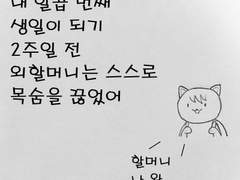 내 일곱 번째
생일이 되기
2주일 전
외할머니는 스스로
목숨을 끊었어
할머니
나 왔